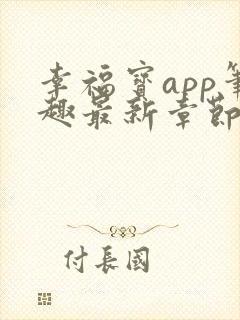 幸福寶app筆
趣最新章節
付長國